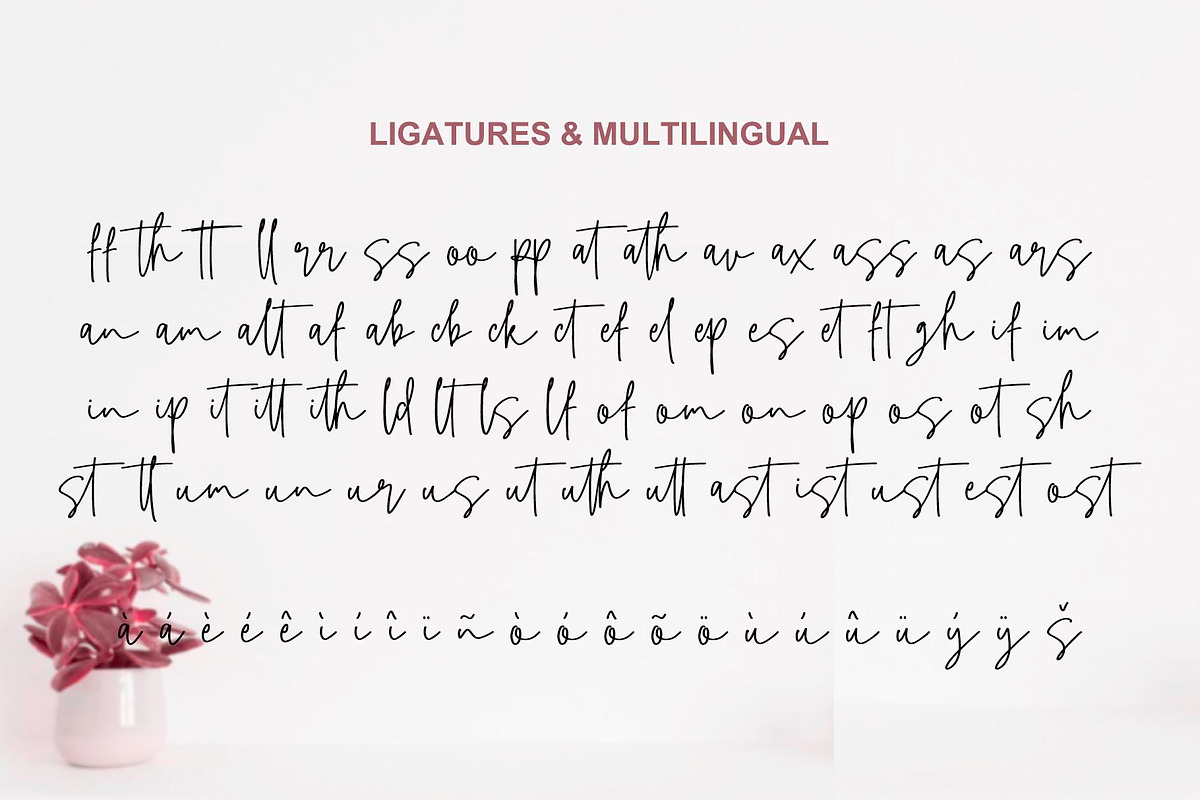 LIGATURES & MULTILINGUAL
ff th tt ll rr ss oo pp at ath av ax ass as ars
an am alt af ab cb ck ct ef el ep es et ft gh if im
in ip it itt ith ld lt ls lf of om on op os ot sh
st tt um un ur us ut uth utt ast ist ust est ost
à á è é ê ì í î ï ñ ò ó ô õ ö ù ú û ü ý ÿ š